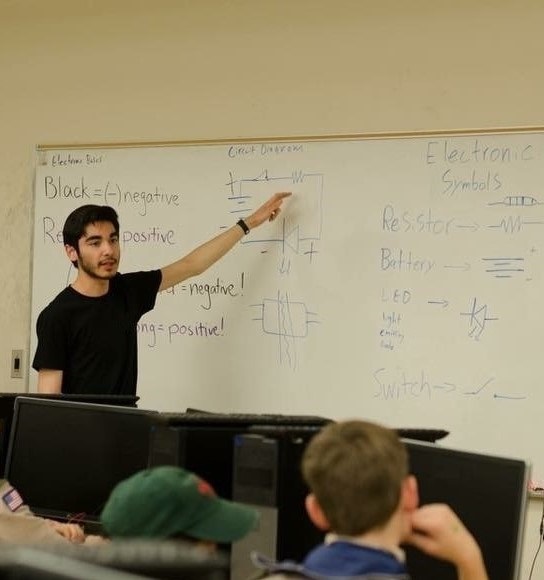 Electronic Basics
Black = (-) negative
Re positive
= negative!
ng = positive!
Circuit Diagram
+
-
- +
Electronic
Symbols
Resistor →
Battery →
-
LED →
light
emitting
diode
Switch →